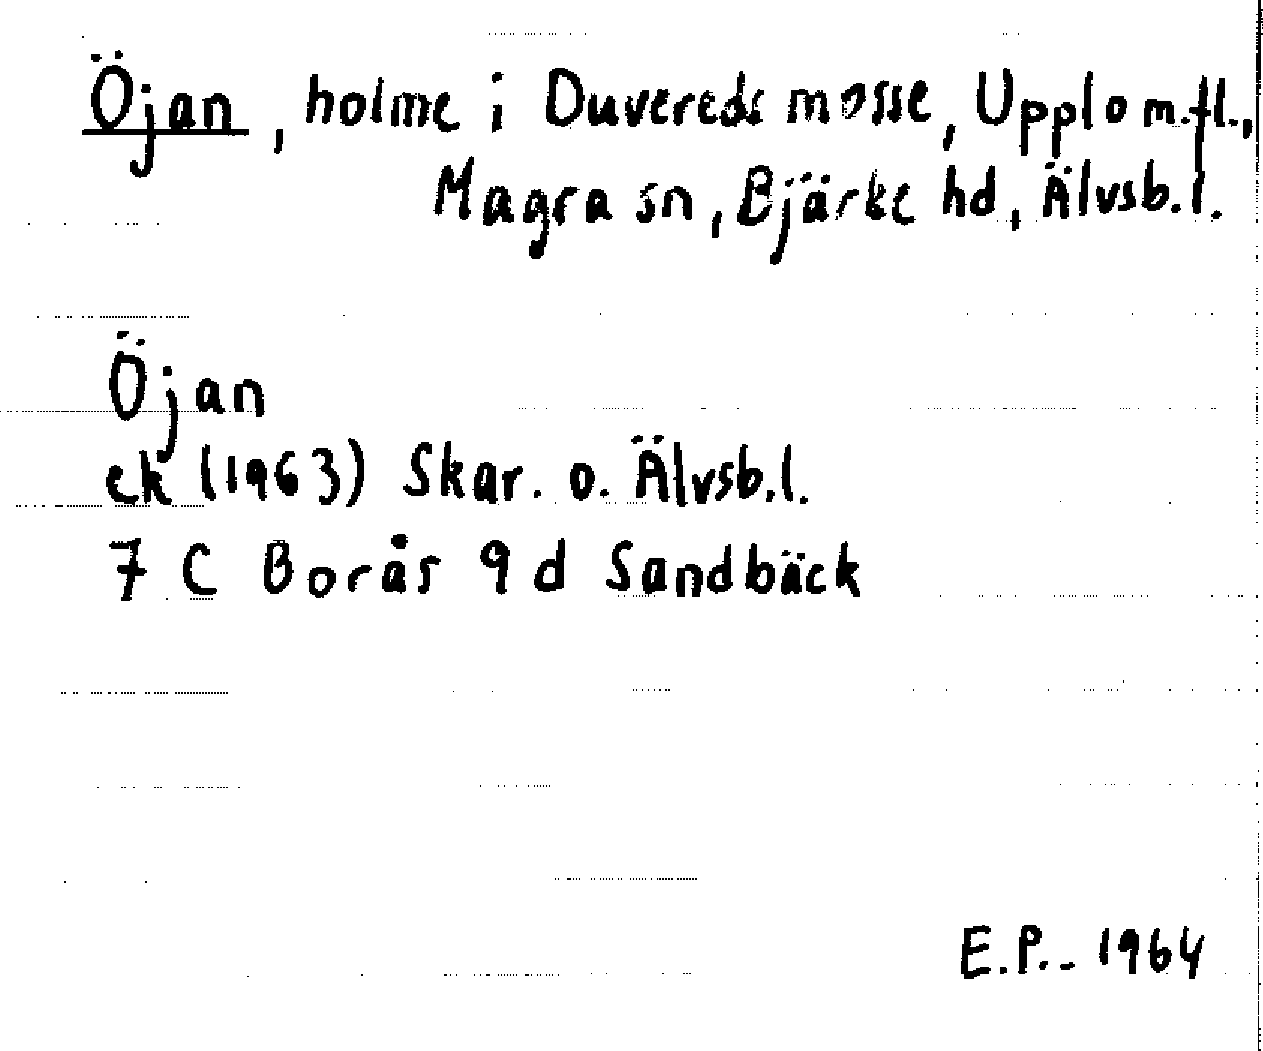 Öjan, holme i Duvereds mosse, Upplo m.fl.,
Magra sn, Bjärke hd, Älvsb.l.
Öjan
ek (1963) Skar. o. Älvsb.l.
7 C Borås 9 d Sandbäck
E.P.- 1964